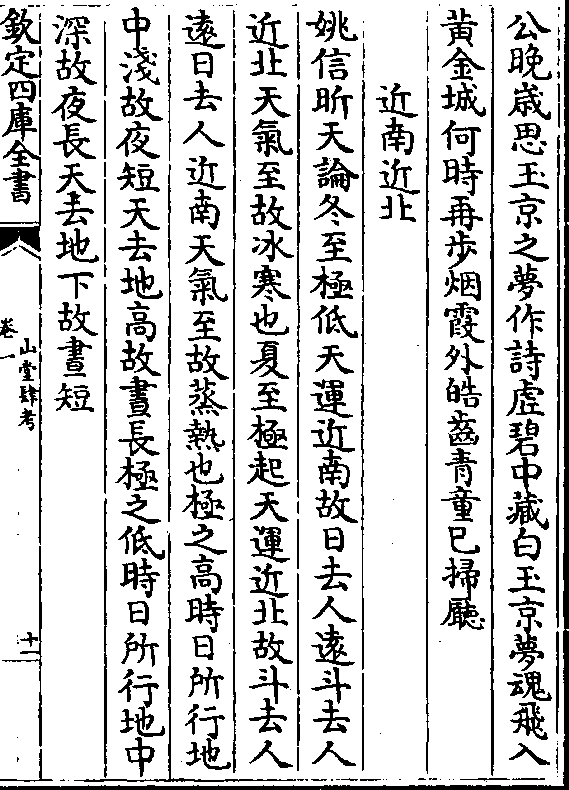 公晚歳思玉京之夢作詩虚碧中藏白玉京夢魂飛入
黄金城何時再步烟霞外皓齒青童已掃廳
近南近北
姚信昕天論冬至極低天運近南故日去人遠斗去人
近北天氣至故冰寒也夏至極起天運近北故斗去人
遠日去人近南天氣至故蒸熱也極之高時日所行地
中淺故夜短天去地高故晝長極之低時日所行地中
深故夜長天去地下故晝短
欽定四庫全書
山堂肆考
卷一
十